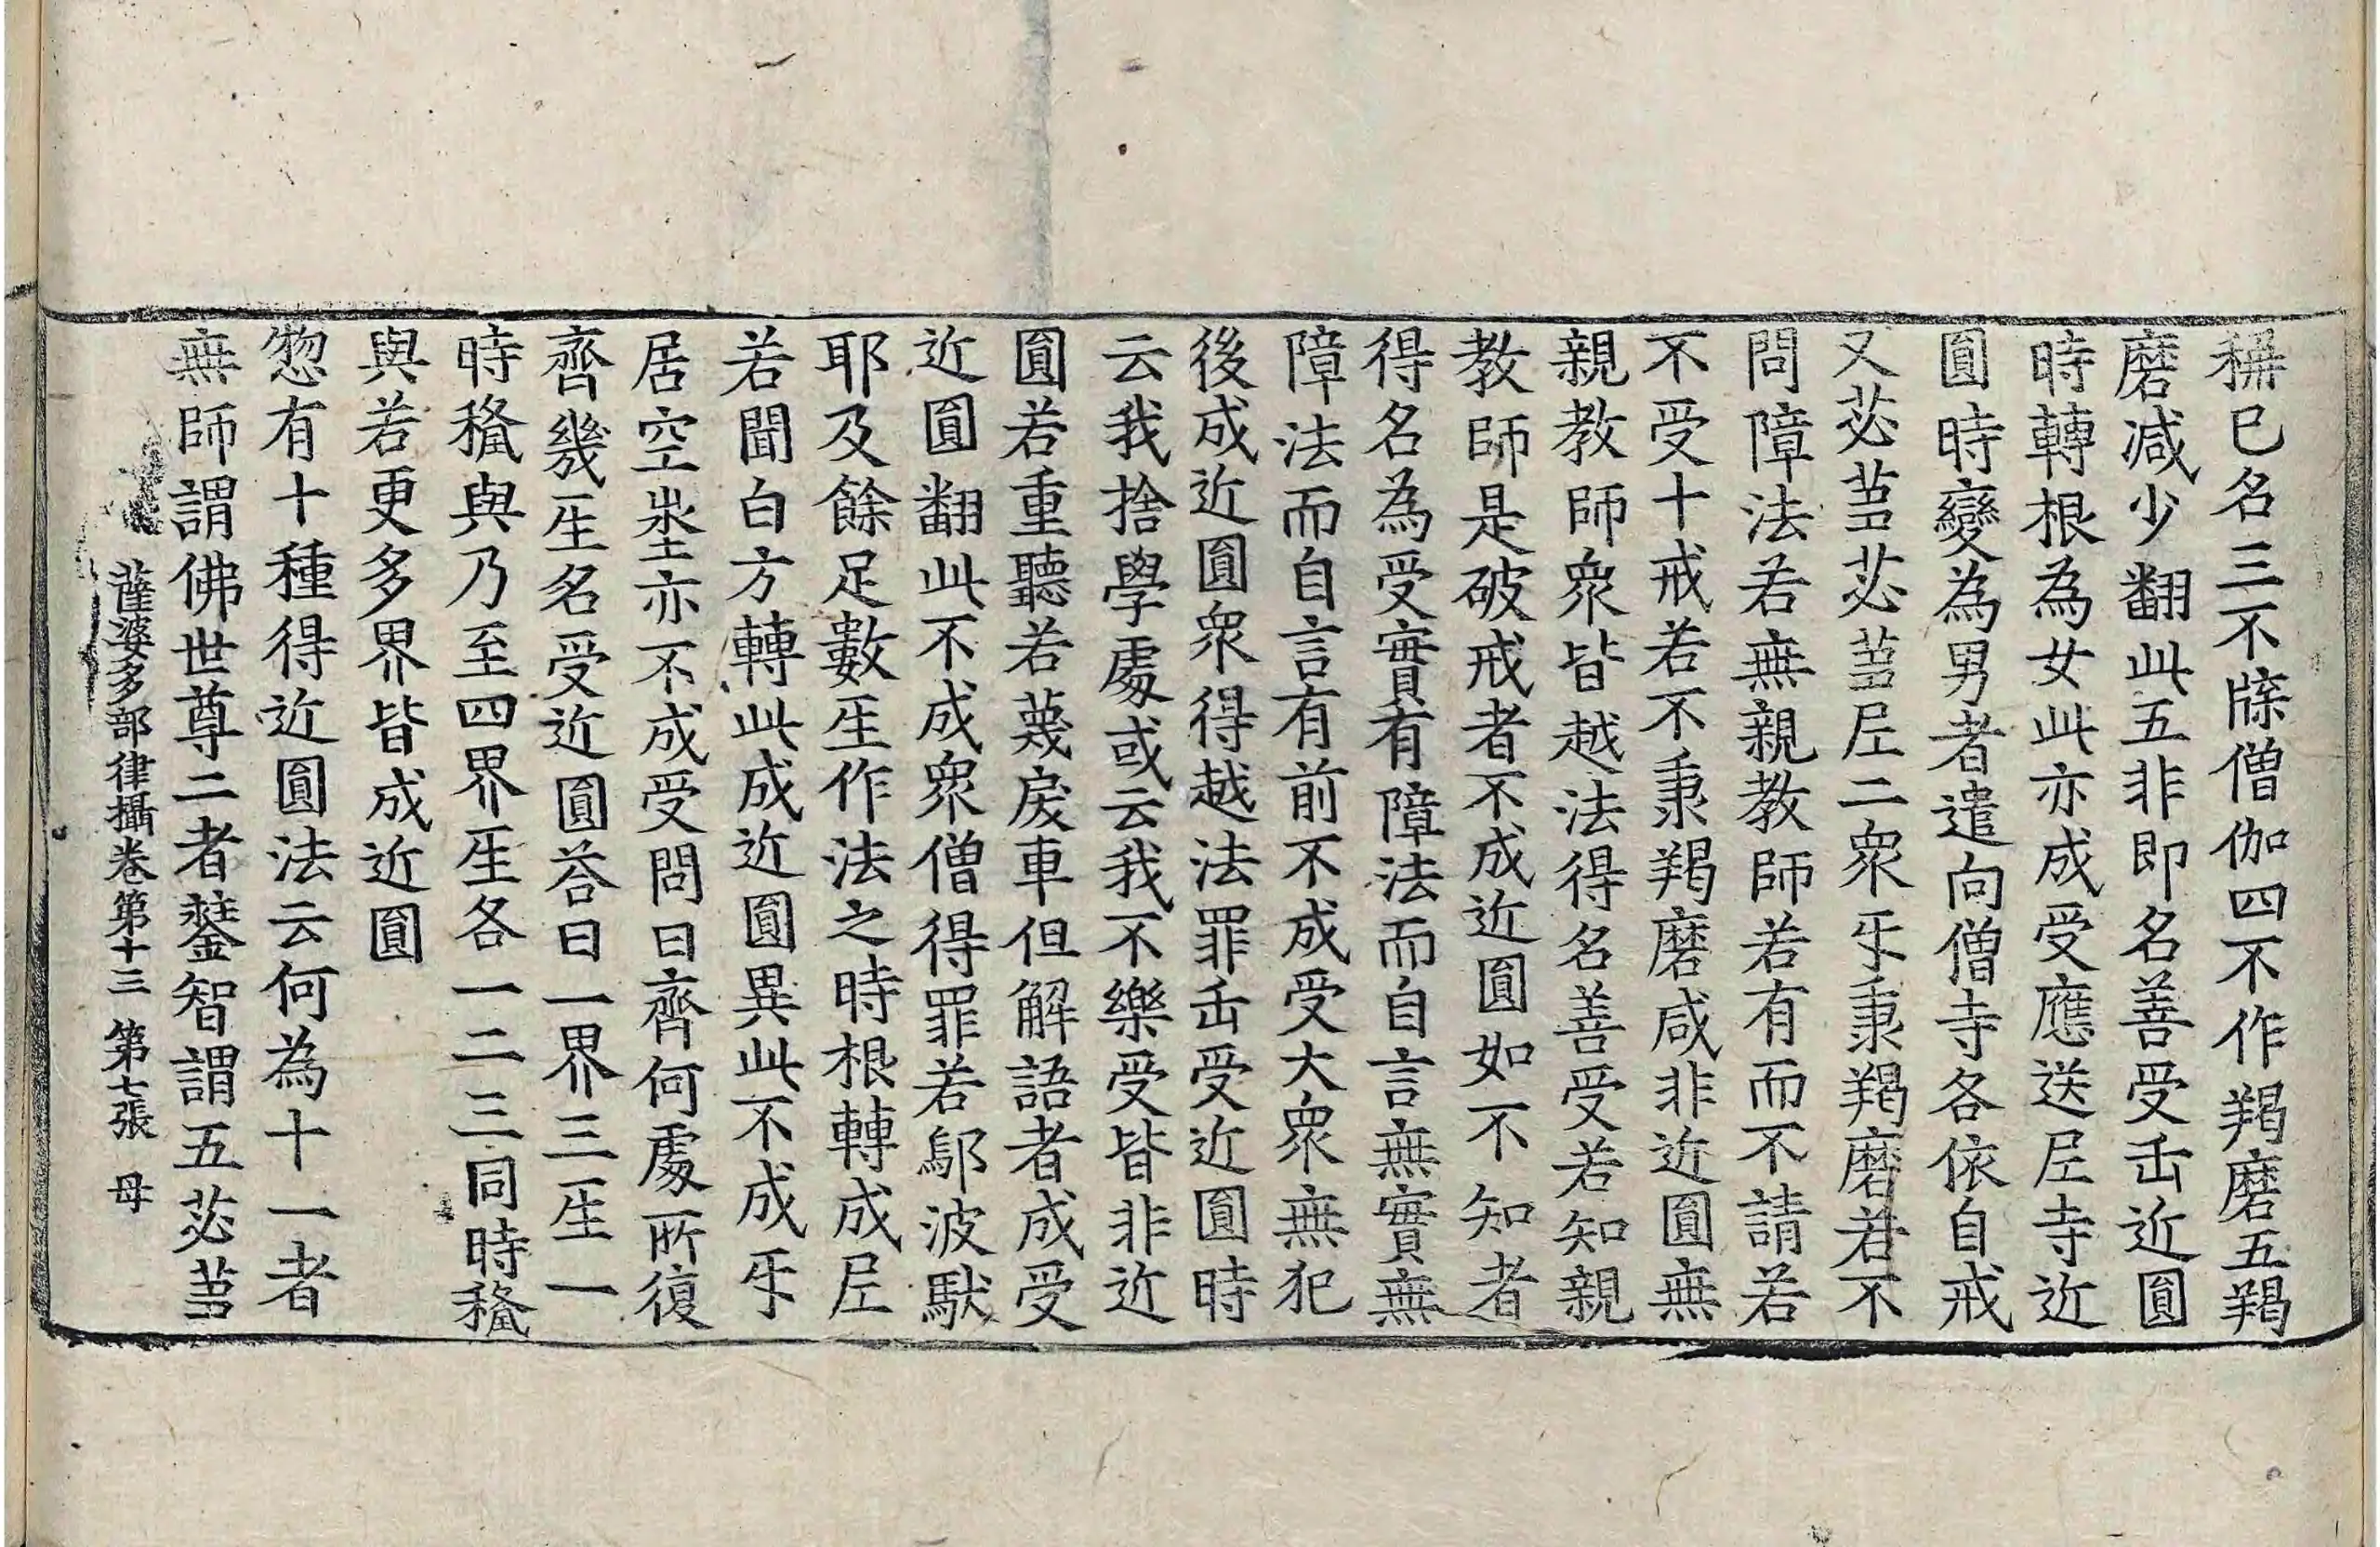 稱己名三不牒僧伽四不作羯磨五羯
磨減少翻此五非即名善受正近圓
時轉根為女此亦成受應送尼寺近
圓時變為男者遣向僧寺各依自戒
又苾蒭苾蒭尼二眾互秉羯磨若不
問障法若無親教師若有而不請若
不受十戒若不秉羯磨咸非近圓無
親教師眾皆越法得名善受若知親
教師是破戒者不成近圓如不知者
得名為受實有障法而自言無實無
障法而自言有前不成受大眾無犯
後成近圓眾得越法罪正受近圓時
云我捨學處或云我不樂受皆非近
圓若重聽若蔑戾車但解語者成受
近圓翻此不成眾僧得罪若鄔波馱
耶及餘足數生作法之時根轉成尼
若聞白方轉此成近圓異此不成互
居空地亦不成受問曰齊何處所復
齊幾生名受近圓荅曰一界三生一
時秴與乃至四界生各一二三同時秴
與若更多界皆成近圓
惣有十種得近圓法云何為十一者
無師謂佛世尊二者證智謂五苾蒭
薩婆多部律攝卷第十三 第七張 母